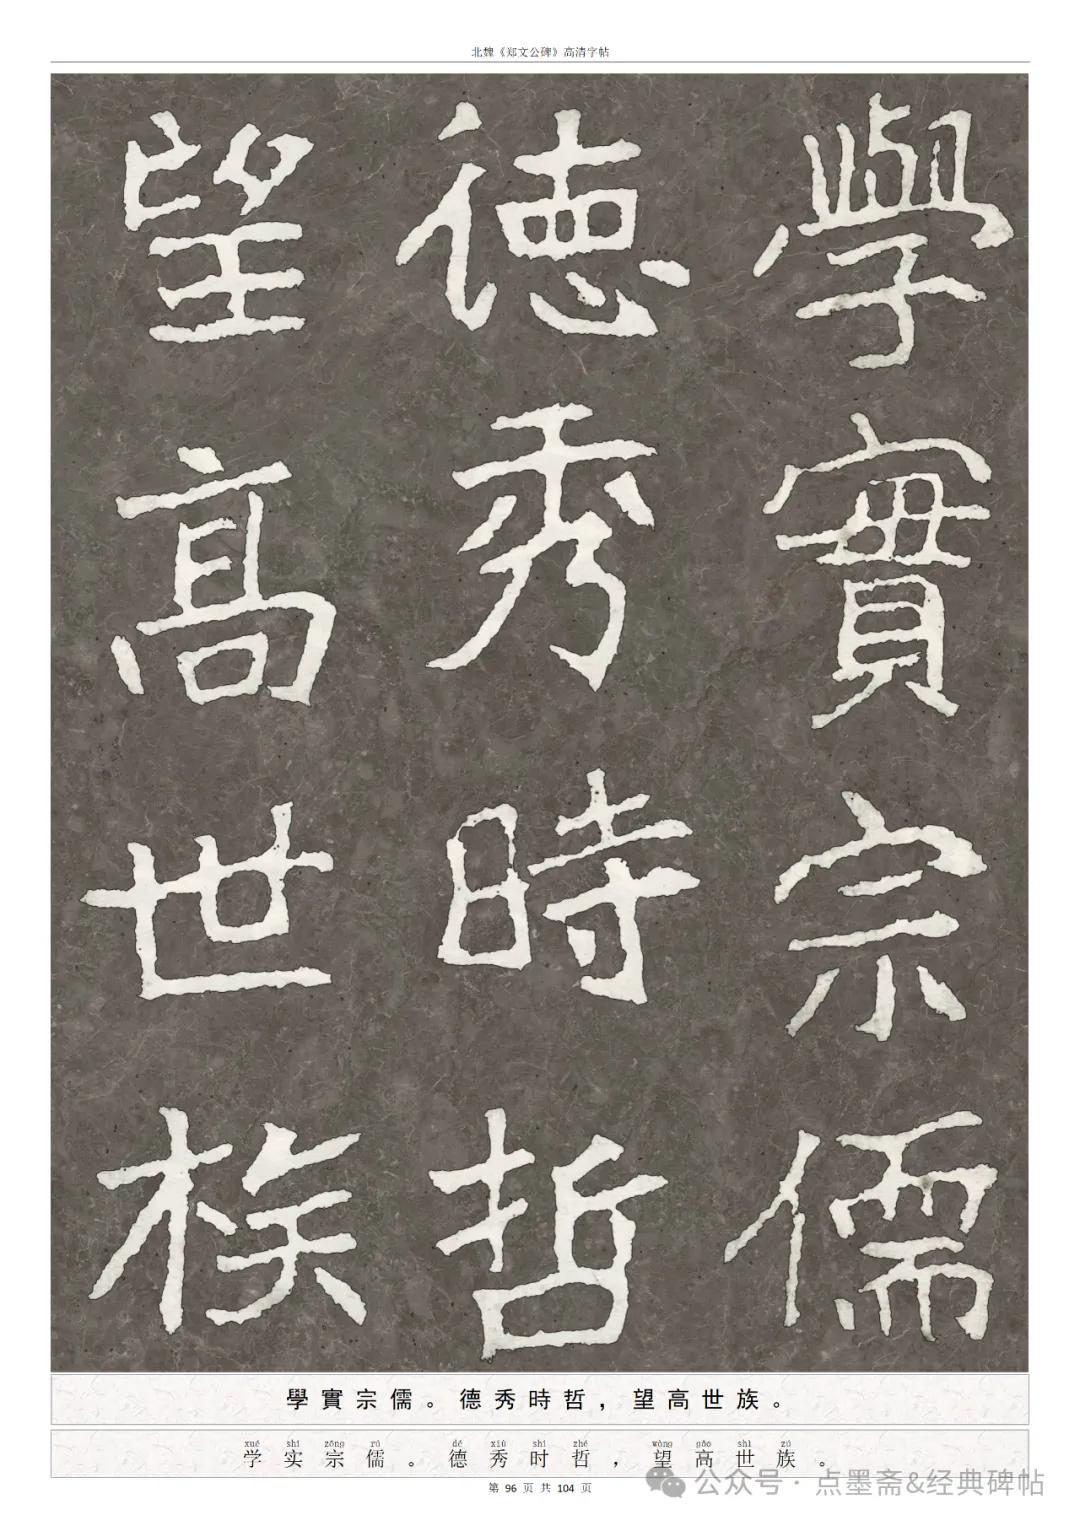 北魏《郑文公碑》高清字帖
學實宗儒
德秀時哲
望高世族
學實宗儒。德秀時哲，望高世族。
xué shí zōng rú dé xiù shí zhé wàng gāo shì zú
学实宗儒。德秀时哲，望高世族。
第 96 页 共 104 页
公众号·点墨斋&经典碑帖